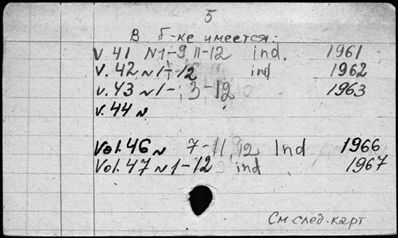 5
В б-ке имеется:
V 41 N 1-9, 11-12 ind. 1961
V. 42 N 1-12 ind 1962
V. 43 N 1- , 3-12 1963
V. 44 N
Vol. 46 N 7-11, 12 Ind 1966
Vol. 47 N 1-12 ind 1967
См след. карт